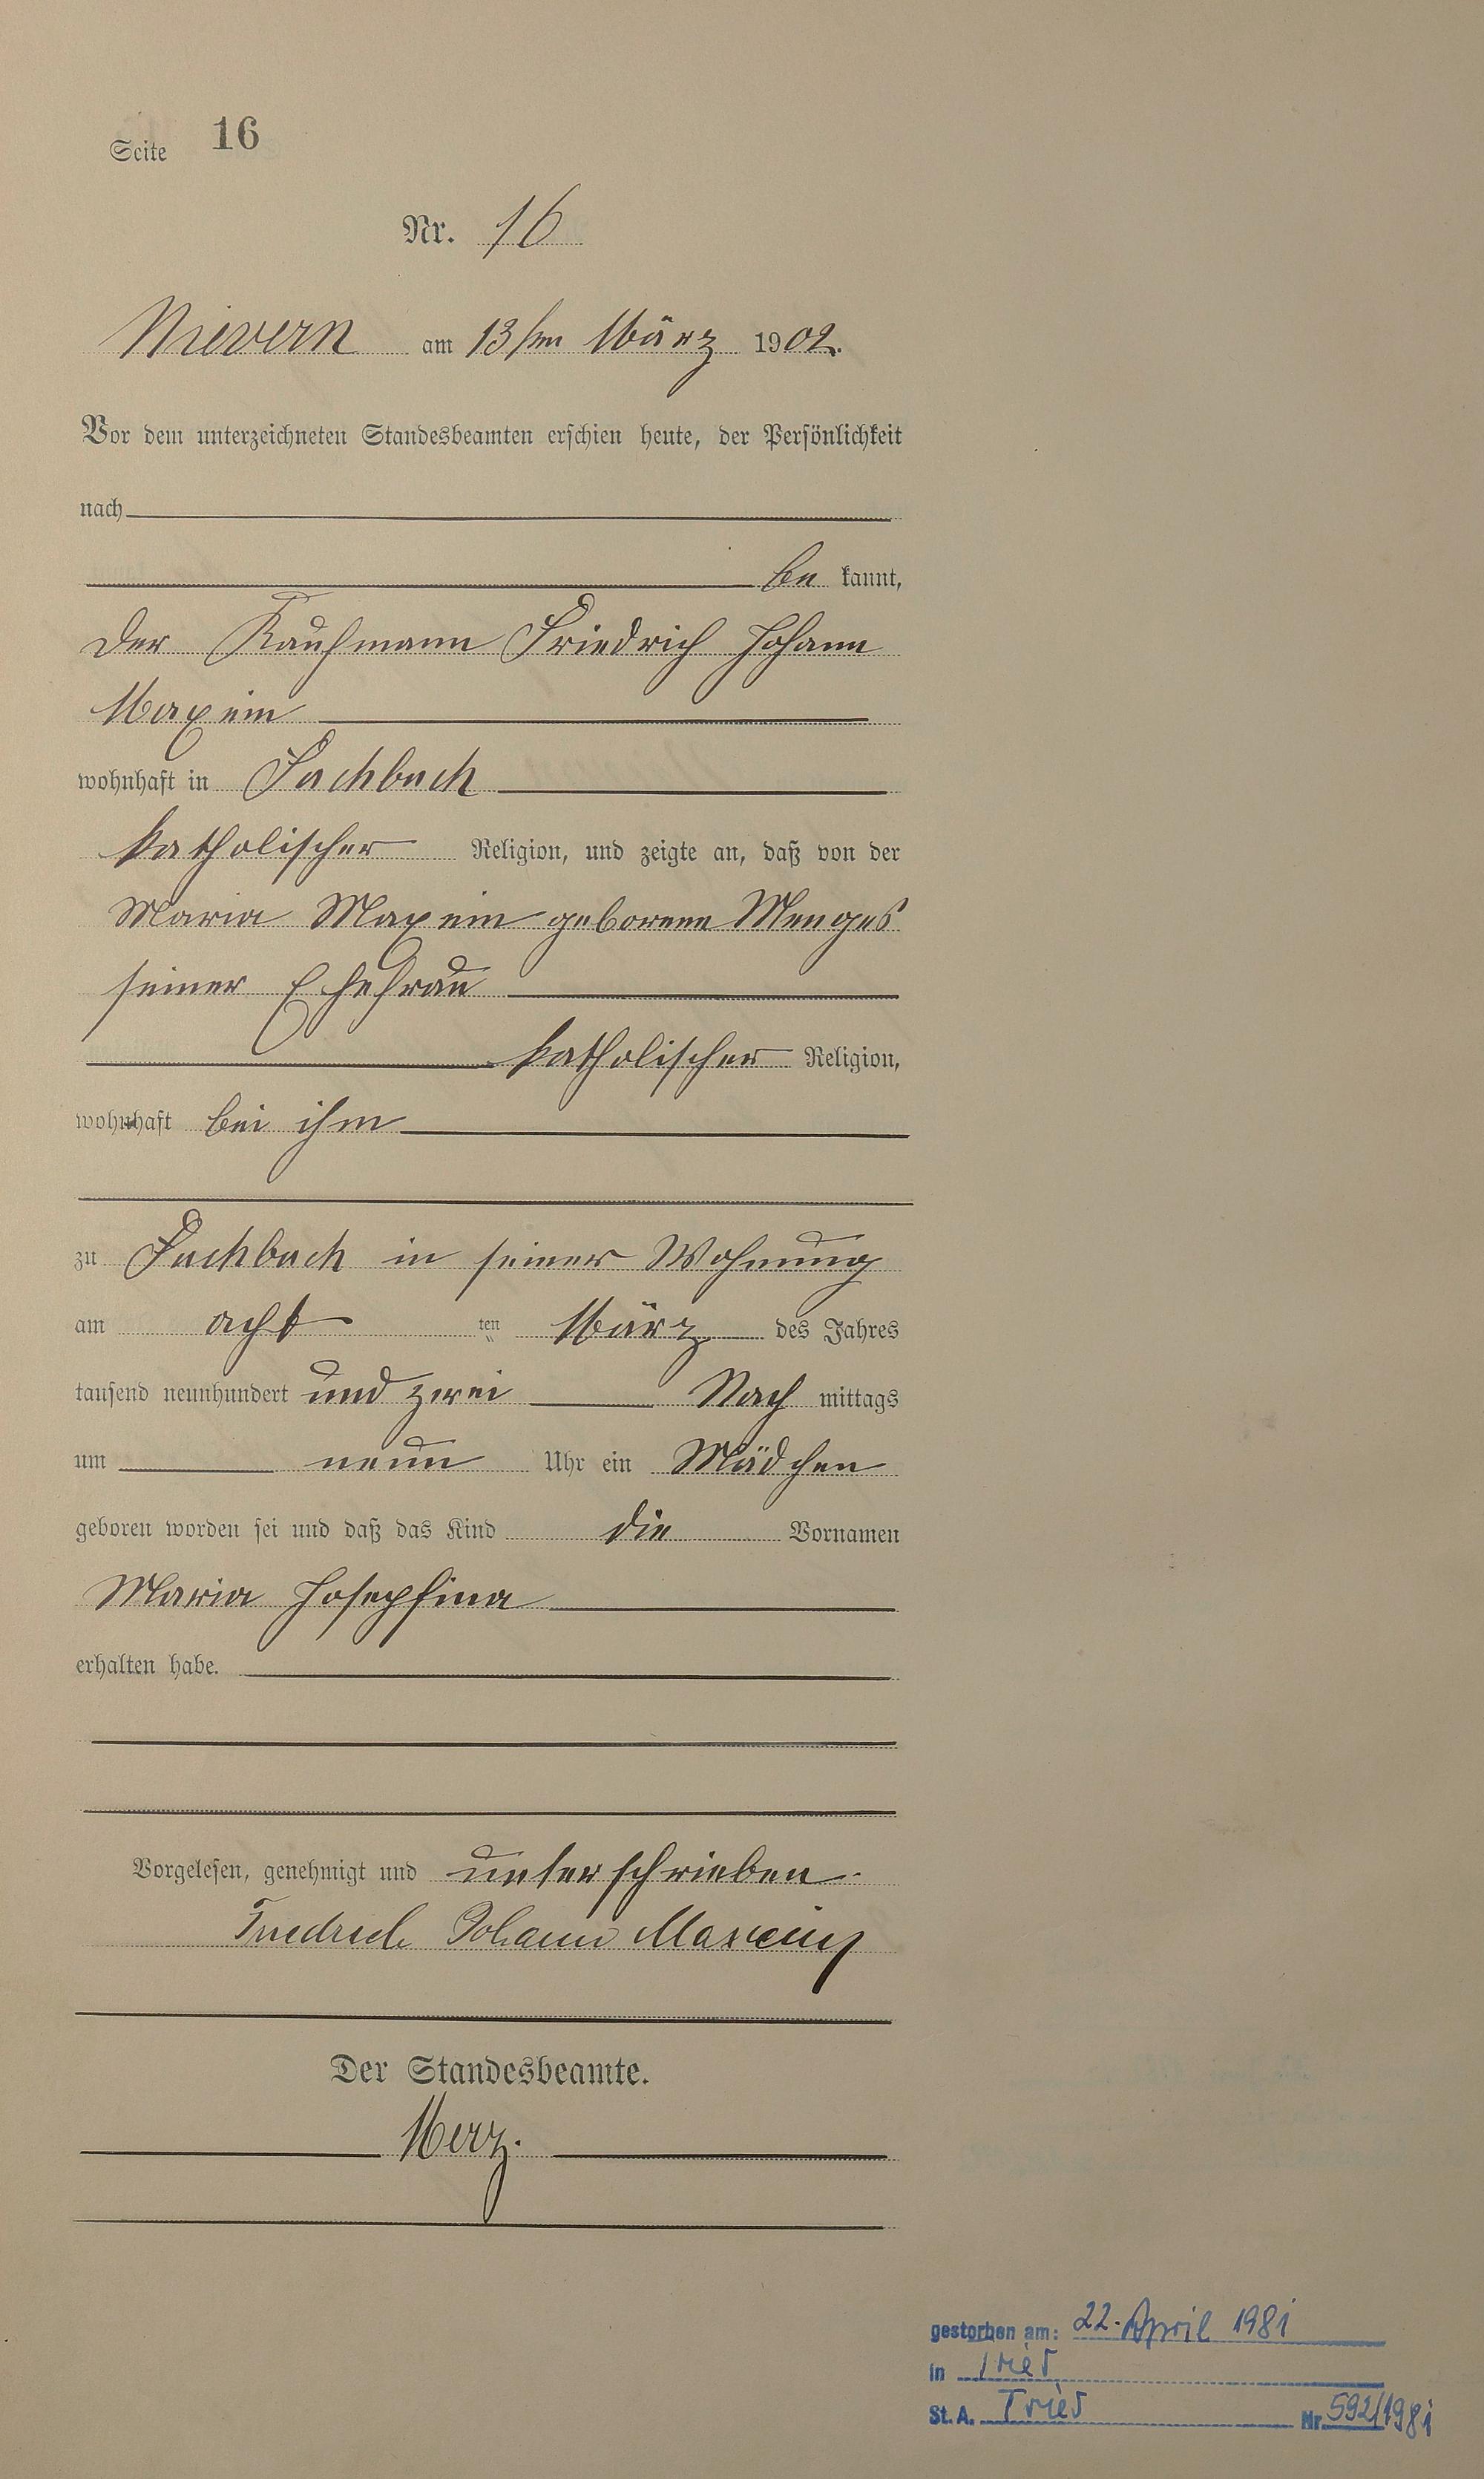 Seite 16
Nr. 16
Nievern am 13ten März 1902.
Vor dem unterzeichneten Standesbeamten erschien heute, der Persönlichkeit
nach
be kannt,
der Kaufmann Friedrich Johann
Maxeim
wohnhaft in Fachbach
katholischer Religion, und zeigte an, daß von der
Maria Maxeim geborene Menges
seiner Ehefrau
katholischer Religion,
wohnhaft bei ihm
zu Fachbach in seiner Wohnung
am acht ten März des Jahres
tausend neunhundert und zwei Nach mittags
um neun Uhr ein Mädchen
geboren worden sei und daß das Kind die Vornamen
Maria Josephina
erhalten habe.
Vorgelesen, genehmigt und unterschrieben
Friedrich Johann Maxeim
Der Standesbeamte.
Merz.
gestorben am: 22. April 1981
in Trier
St. A. Trier Nr. 592/1981